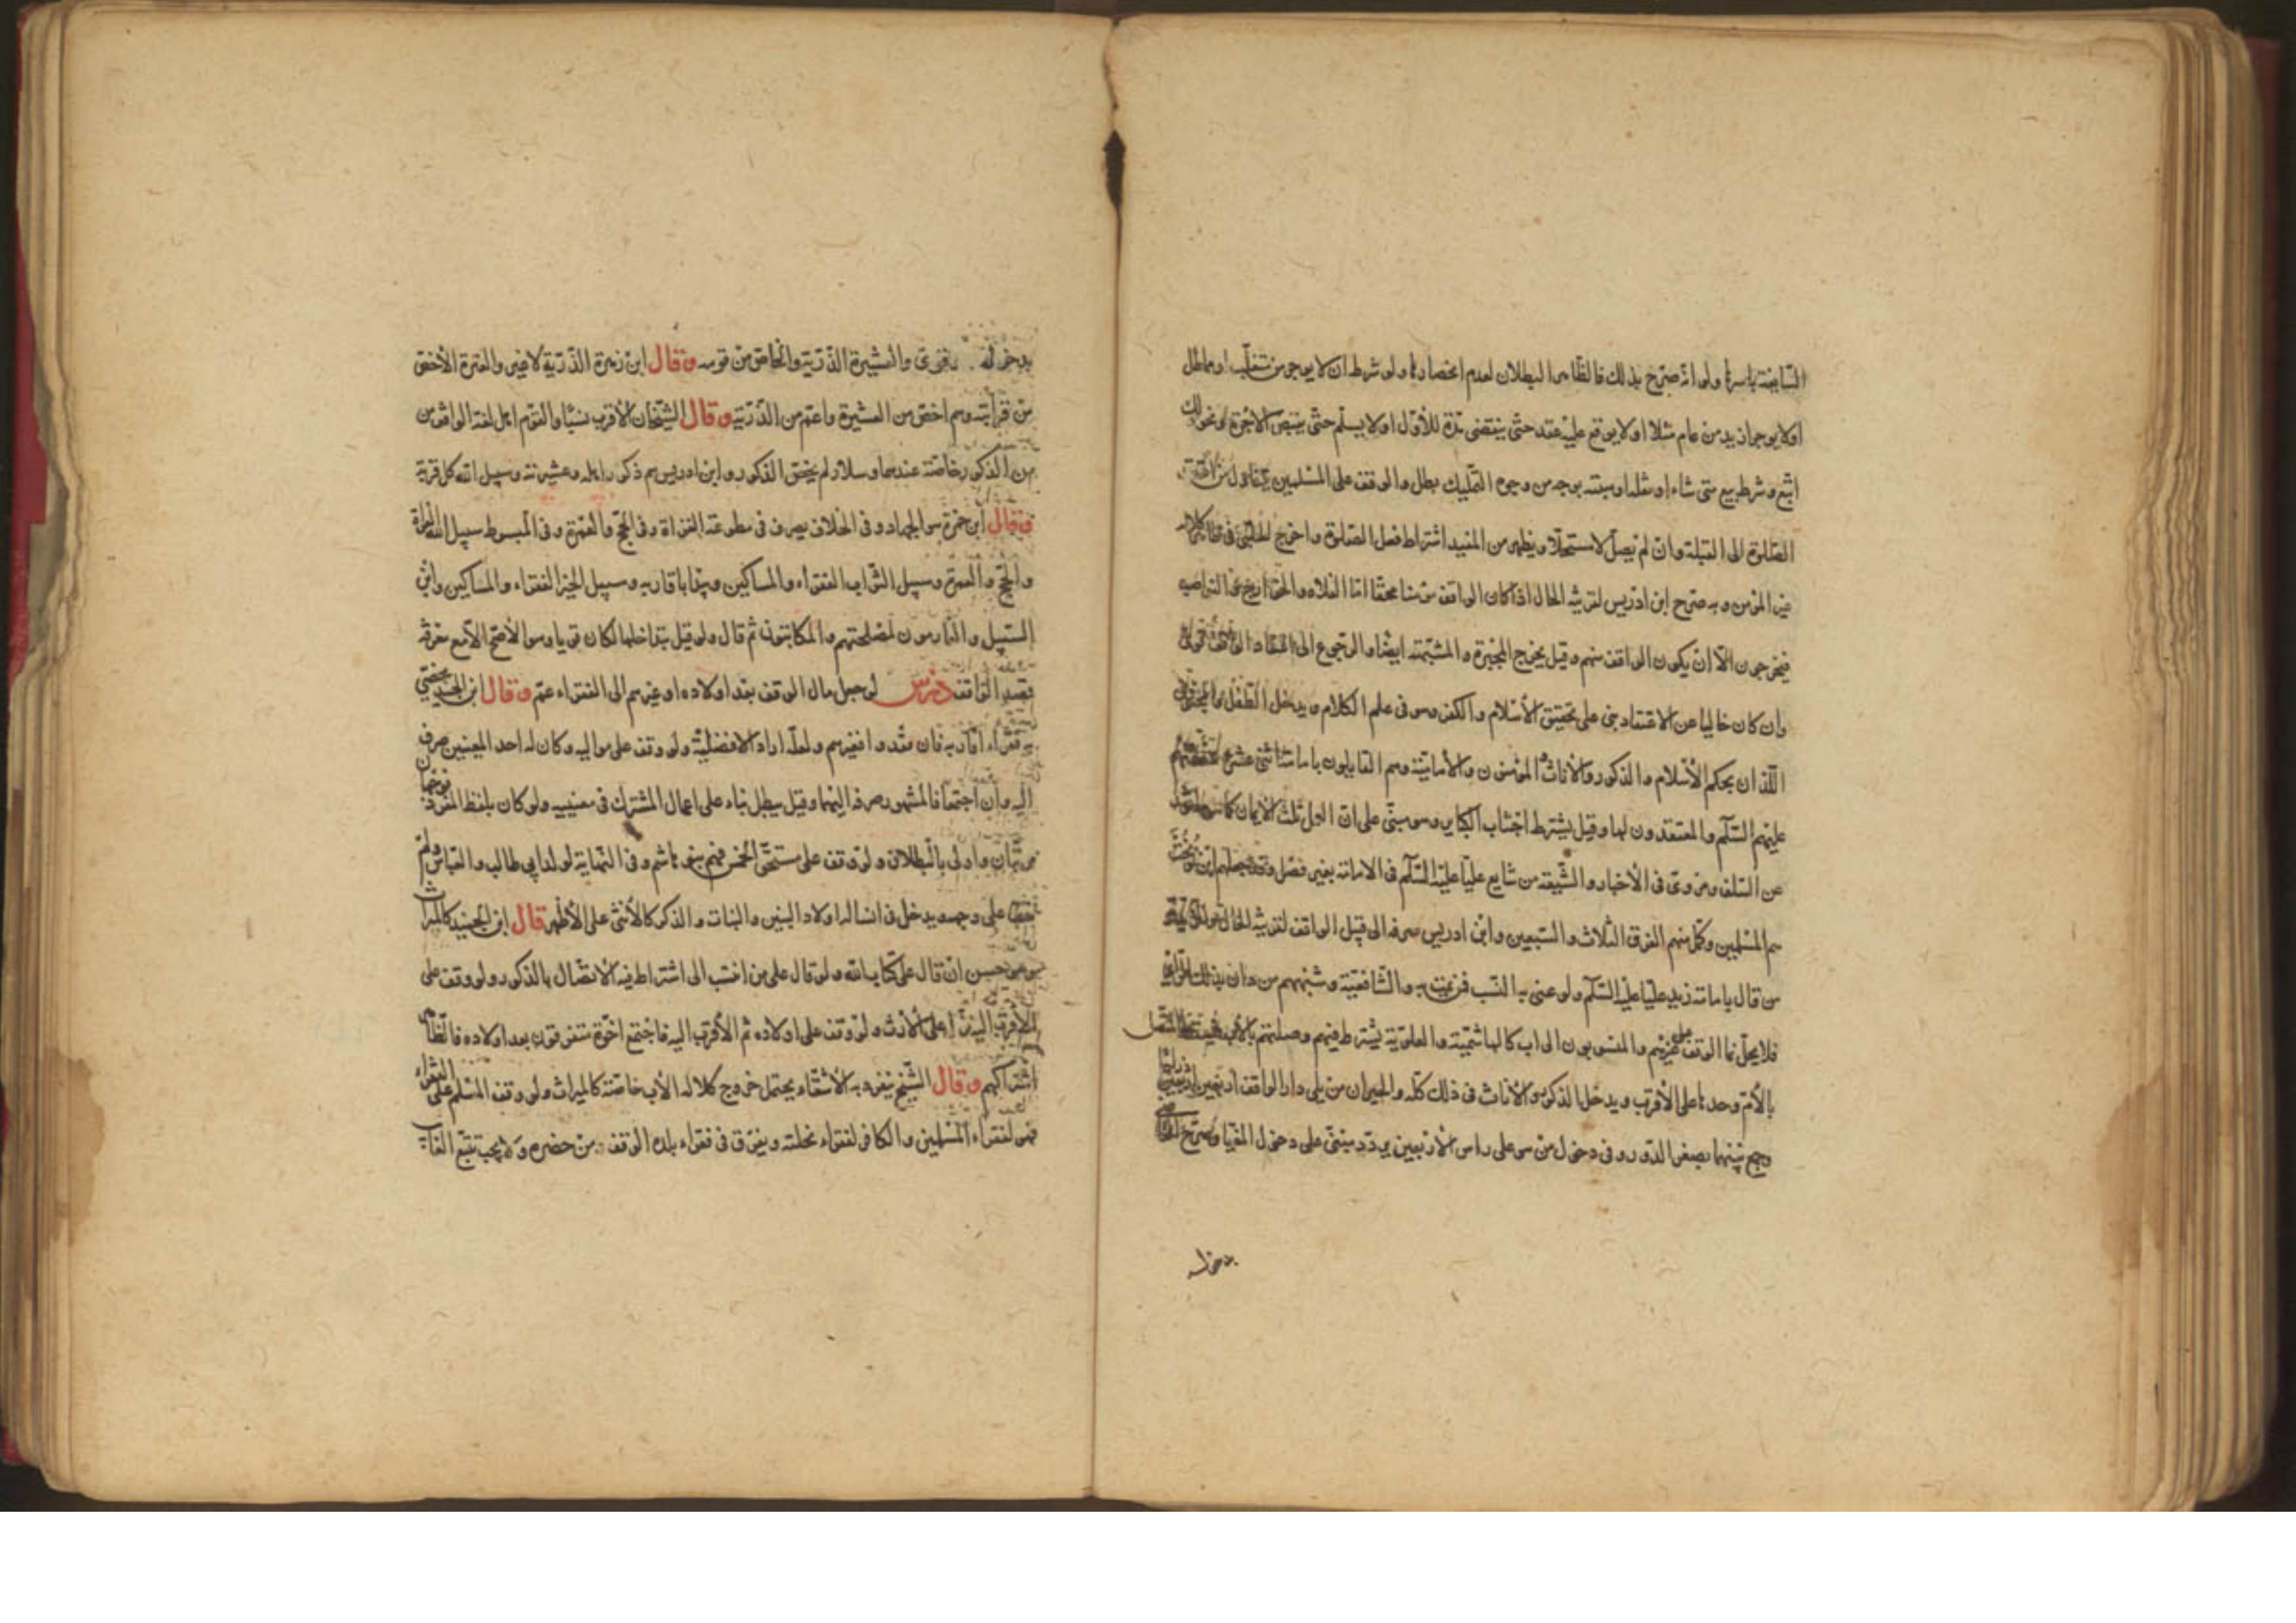 السابغة باسرها ولو انه صرح بذلك فالظاهر البطلان لعدم انحصارها ولو شرط ان لا يوجر من متغلب او مماطل
او لا يوجر ازيد من عام مثلا او لا يوقع عليه عقد حتى ينقضي مدة للأول او لا يسلم حتى يقبض الاجرة او نحو ذلك
اتبع ولو شرط بيعه متى شاء او نقله او هبته بوجه من وجوه التمليك بطل والوقف على المسلمين يتناول من اعتقد
الصلوة الى القبلة وان لم يصل لا مستحلا ويظهر من المفيد اشتراط فعل الصلوة واخرج الحلبي في
غير المؤمن وبه صرح ابن ادريس لقرينة الحال اذا كان الواقف محقا اما الغلاة والخوارج والنواصب
فيخرجون الا ان يكون الواقف منهم وقيل يخرج المجبرة والمشبهة ايضا والرجوع الى اعتقاد الواقف قوي
وان كان خاليا عن الاعتقاد بني على تحقيق الأسلام والكفر وهو في علم الكلام ويدخل الطفل والمجنون
اللذان بحكم الأسلام والذكور والأناث المؤمنون والأمامية وهم القايلون بامامة اثني عشر
عليهم السلم والمعتقدون لها وقيل يشترط اجتناب الكباير وهو مبني على ان العمل ثلث الأيمان كما هو
عن السلف ومروي في الأخبار والشيعة من شايع عليا عليه السلم في الامامة بغير فصل وقد جعلهم ابن نوبخت
هم المسلمين وكل منهم الفرق الثلاث والسبعين وابن ادريس صرفه الى قبيل الواقف لقرينة الحال
من قال بامامة زيد عليا عليه السلم ولو عنى به النسب فمن يمت به والشافعية وشبههم من دان بذلك
فلا يحل نماء الوقف على غيرهم والمنسوبون الى اب كالهاشمية والعلوية يشترط فيهم وصلتهم بالأب
بالأم وحدها على الأقرب ويدخل الذكور والأناث في ذلك كله والجيران من يلي دار الواقف اربعين
وجمع بينهما بصغر الدور وفي دخول من هو على راس الأربعين تردد مبني على دخول المغيا وصرح
بدخوله
بدخوله والعشيرة الذرية والخاص من قومه وقال ابن زهرة الذرية لا غير والعترة الأخص
من قرابته وهم اخص من العشيرة واعم من الذرية وقال الشيخان الأقرب نسبا والقوم اهل لغة الواقف من
من الذكور خاصة عندهما وسلار لم يخص الذكور وابن ادريس هم ذكور اهله وعشيرته وسبيل الله كل قربة
وقال ابن حمزة هو الجهاد وفي الخلاف يصرف في مطوعة الغزاة وفي الحج والعمرة وفي المبسوط سبيل الله الغزاة
والحج والعمرة وسبيل الثواب الفقراء والمساكين ويبدأ باقاربه وسبيل الخير الفقراء والمساكين وابن
السبيل والغارمون لمصلحتهم والمكاتبون ثم قال ولو قيل بتداخلها لكان قويا وهو الأصح الا مع معرفة
بقصد الواقف درس لو جعل مال الوقف بعد اولاده او غيرهم الى الفقراء عم وقال ابن الجنيد يختص
به فقراء اقاربه فان فقدوا فغيرهم ولعله اراد الافضلية ولو وقف على مواليه وكان له احد المعينين صرف
اليه وان اجتمعا فالمشهور صرفه اليهما وقيل يبطل بناء على اعمال المشترك في معنييه ولو كان بلفظ المفرد فوجهان
مرتبان واولى بالبطلان ولو وقف على مستحق الخمس فهم بنو هاشم وفي النهاية لولد ابي طالب والعباس ولم
على وجهه ويدخل في انساله اولاد البنين والبنات والذكر كالأنثى على الأظهر قال ابن الجنيد كالميراث
وهو حسن ان قال على كتاب الله ولو قال على من انتسب الى اشتراط فيه الاتصال بالذكور ولو وقف على
الأقرب اليه نزل على الأرث ولو وقف على اولاده ثم الأقرب اليه فاجتمع اخوة متفرقون بعد اولاده فالظاهر
اشتراكهم وقال الشيخ ينفرد به الأشقاء ويحتمل خروج كلالة الأب خاصة كالميراث ولو وقف المسلم على الفقراء
فهو لفقراء المسلمين والكافر لفقراء نحلته ويفرق في فقراء بلد الوقف من حضره ولا يجب تتبع الغايب